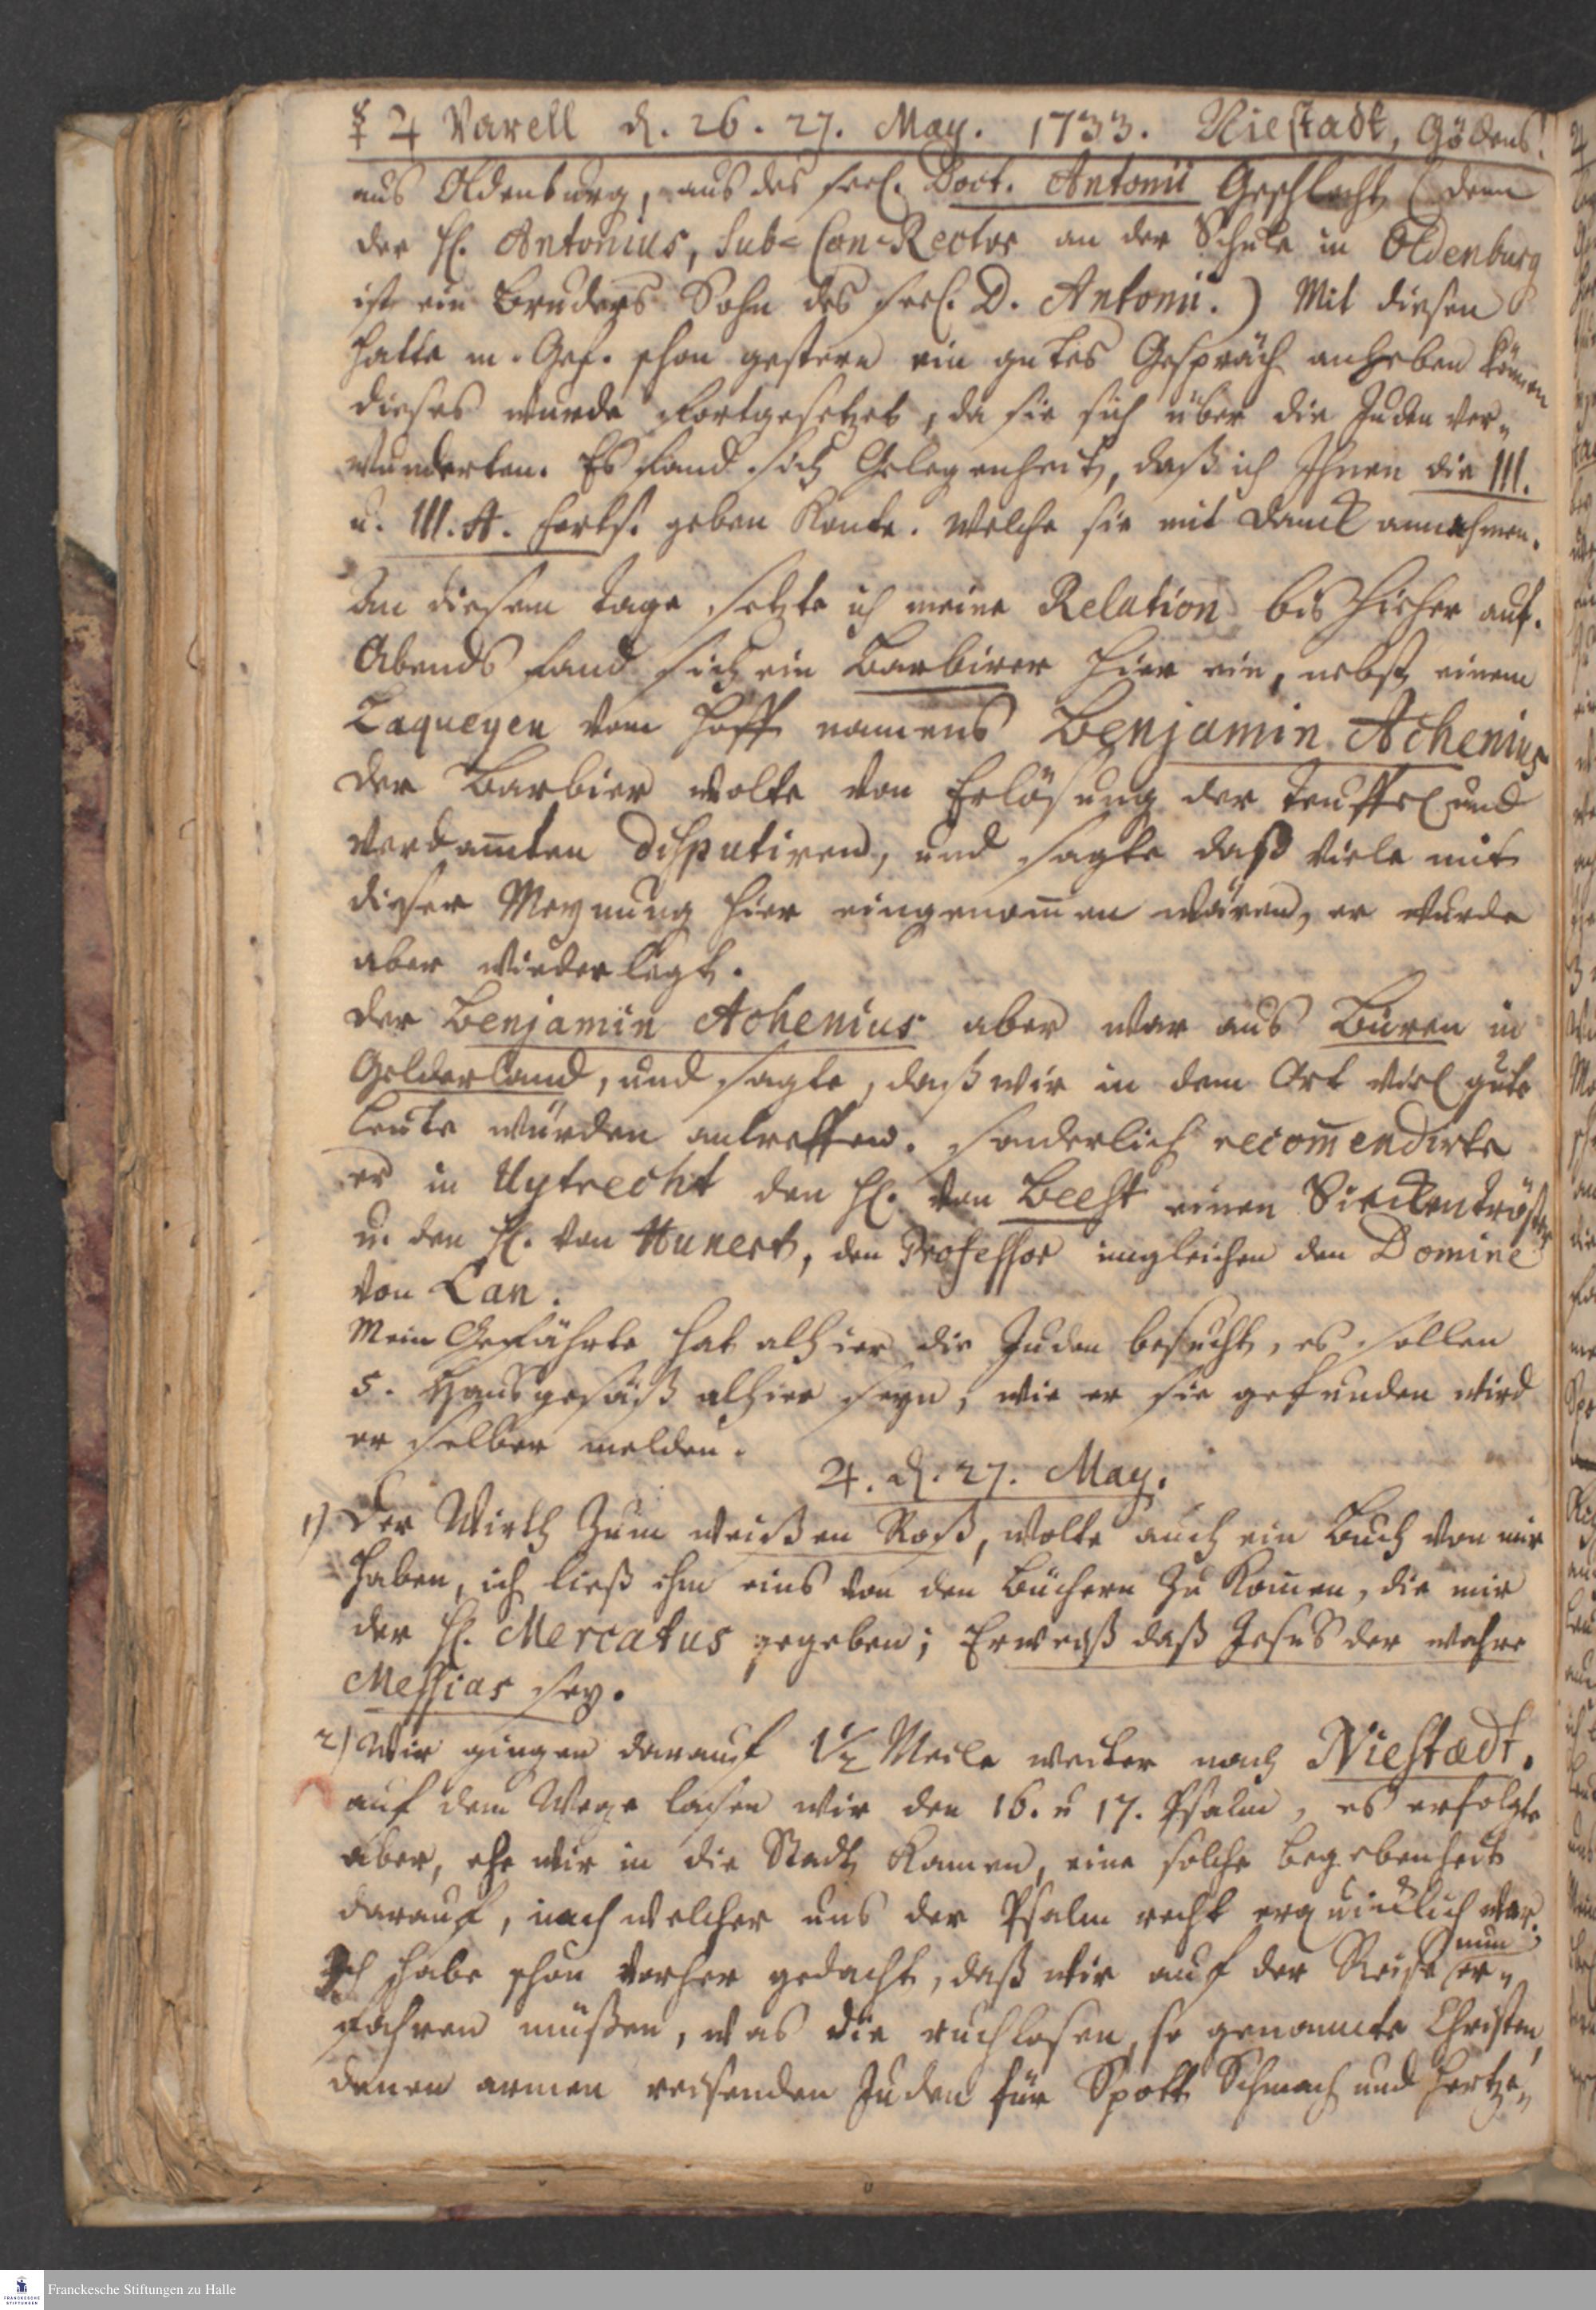 ☿ ♃ Varell d. 26. 27. May. 1733. Niestadt, Gödens.
aus Oldenburg, aus des seel. Doct. Antonii Geschlecht (denn
der H. Antonius, Sub-Con-Rector an der Schule in Oldenburg
ist ein Bruders Sohn des seel. D. Antonii.) Mit diesen
hatte m. Gef. schon gestern ein gutes Gespräch anheben können
dieses wurde fortgesetzet, da sie sich über die Juden ver-
wunderten. Es fand sich Gelegenheit, daß ich Ihnen die III.
u. III. A. forts. geben konte. welche sie mit Danck annahmen.
An diesem Tage setzte ich meine Relation bis hieher auf.
Abends fand sich ein Barbirer hier ein, nebst einem
Laqueyen vom Hoff namens Benjamin Achenius
der Barbier wolte von Erlösung der Teuffel und
verdam̅ten disputiren, und sagte daß viele mit
dieser Meynung hier eingenom̅en wären, er wurde
aber wiederlegt.
der Benjamin Achenius aber war aus Büren in
Gelderland, und sagte, daß wir in dem Ort viel gute
Leute würden antreffen. sonderlich recom̅endirte
er in Uytrecht den H. von Beest einen Sieckentröster
u. den H. von Hunert, den Professor imgleichen den Domine
von Lan.
Mein Gefährte hat alhier die Juden besucht, es sollen
5. Hausgesäß alhier seyn, wie er sie gefunden wird
er selber melden.
♃. d. 27. May.
1) Der Wirth zum weißen Roß, wolte auch ein Buch von mir
haben, ich ließ ihm eins von den Büchern zu kom̅en, die mir
der H. Mercatus gegeben; Erweiß daß Jesus der wahre
Messias sey.
2) Wir gingen darauf 1½ Meile weiter nach Niestadt.
auf dem Wege lasen wir den 16. u 17. Psalm, es erfolgte
aber, ehe wir in die Stadt kamen, eine solche begebenheit
darauf, nach welcher uns der Psalm recht erquicklich war.
nun
Ich habe schon vorher gedacht, daß wir auf der Reise er-
fahren müßen, was die ruchlosen, so genannte Christen,
denen armen reisenden Juden für Spott Schmach und Hertze-
Franckesche Stiftungen zu Halle
FRANCKESCHE
STIFTUNGEN